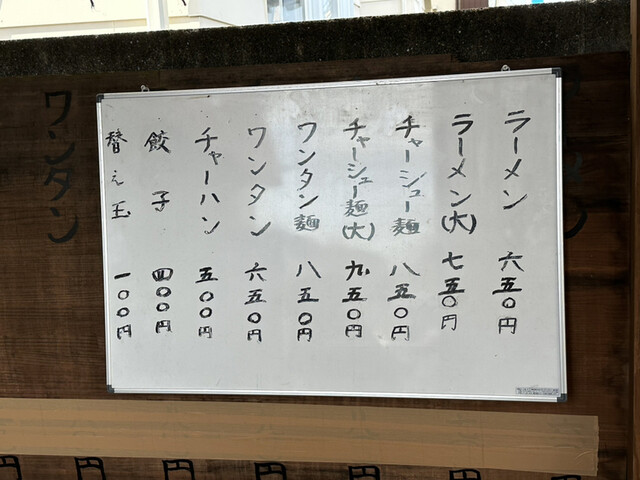 ラーメン 六五〇円
ラーメン(大) 七五〇円
チャーシュー麺 八五〇円
チャーシュー麺(大) 九五〇円
ワンタン麺 八五〇円
ワンタン 六五〇円
チャーハン 五〇〇円
餃子 四〇〇円
替え玉 一〇〇円
ワンタン
円
円
円
円
円
円
円